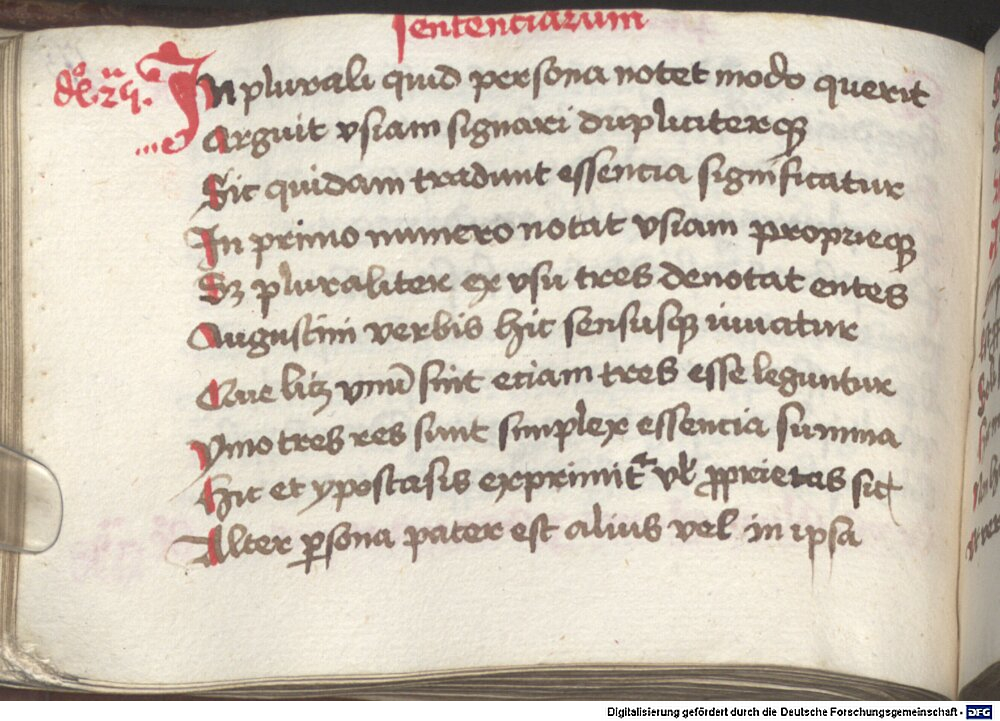 sentenciarum
In plurali quid persona notet modo querit
Arguit vsiam signari dupliciterqꝫ
Sic quidam tradunt essencia significatur
In primo numero notat vsiam proprieqꝫ
Sꝫ pluraliter ex vsu tres denotat entes
Augustini verbis hic sensusqꝫ iuuatur
Que licꝫ vnū sint eciam tres esse leguntur
Ymo tres res sunt simplex essencia summa
Hic et ypostasis exprimit᷑ vł ꝓprietas sic
Alter ꝑsona pater est alius vel in ipsa
Digitalisierung gefördert durch die Deutsche Forschungsgemeinschaft - DFG